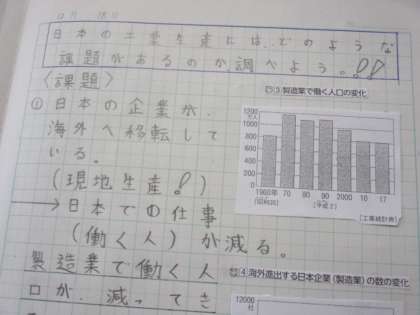 日本の工業生産には、どのような
課題があるのか調べよう。!!
〈課題〉
①日本の企業が、
海外へ移転して
いる。
(現地生産!)
→日本での仕事
(働く人)が減る。
製造業で働く人
口が、減ってき
③製造業で働く人口の変化
1200
万人
1000
800
600
400
200
0
1960年 70 80 90 2000 10 17
(昭和35) (平成2)
〔工業統計表〕
④海外進出する日本企業(製造業)の数の変化
12000
社